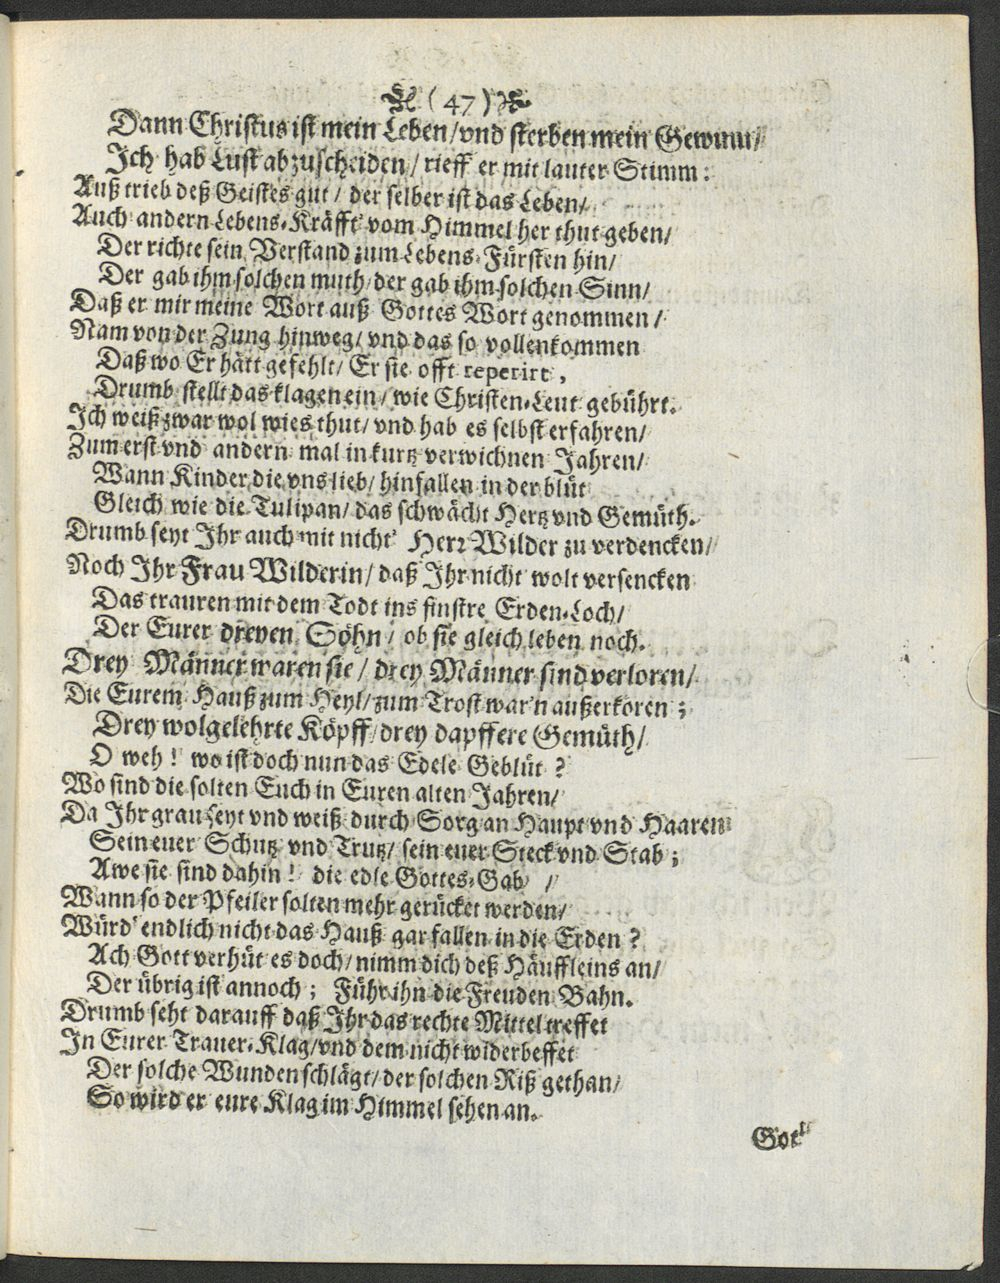 (47)
Dann Christus ist mein Leben/vnd sterben mein Gewinn/
Ich hab Lust abzuscheiden/ rieff er mit lauter Stimm:
Auß trieb deß Geistes gut/ der selber ist das Leben/
Auch andern Lebens-Kräfft vom Himmel her thut geben/
Der richte sein Verstand zum Lebens-Fürsten hin/
Der gab ihm solchen muth/der gab ihm solchen Sinn/
Daß er mir meine Wort auß Gottes Wort genommen/
Nam von der Zung hinweg/ vnd das so vollenkommen
Daß wo Er hätt gefehlt/ Er sie offt repetirt,
Drumb stellt das klagen ein/ wie Christen-Leut gebührt.
Ich weiß zwar wol wies thut/ vnd hab es selbst erfahren/
Zum erst vnd andern mal in kurtz verwichnen Jahren/
Wann Kinder die vns lieb/ hinfallen in der blüt
Gleich wie die Tulipan/ das schwächt Hertz vnd Gemüth.
Drumb seyt Ihr auch mit nicht Herr Wilder zu verdencken/
Noch Ihr Frau Wilderin/ daß Ihr nicht wolt versencken
Das trauren mit dem Todt ins finstre Erden-Loch/
Der Eurer dreyen Söhn/ ob sie gleich leben noch.
Drey Männer waren sie/ drey Männer sind verloren/
Die Eurem Hauß zum Heyl/zum Trost war'n außerkoren;
Drey wolgelehrte Köpff/drey dapffere Gemüth/
O weh! wo ist doch nun das Edele Geblüt?
Wo sind die solten Euch in Euren alten Jahren/
Da Ihr grau seyt vnd weiß durch Sorg an Haupt vnd Haaren
Sein euer Schutz vnd Trutz/ sein euer Steck vnd Stab;
Awe sie sind dahin! die edle Gottes-Gab/
Wann so der Pfeiler solten mehr gerücket werden/
Würd' endlich nicht das Hauß gar fallen in die Erden?
Ach Gott verhüt es doch/ nimm dich deß Häuffleins an/
Der übrig ist annoch; Führ ihn die Freuden Bahn.
Drumb seht darauff daß Ihr das rechte Mittel treffet
In Eurer Trauer-Klag/vnd dem nicht widerbeffet
Der solche Wunden schlägt/der solchen Riß gethan/
So wird er eure Klag im Himmel sehen an.